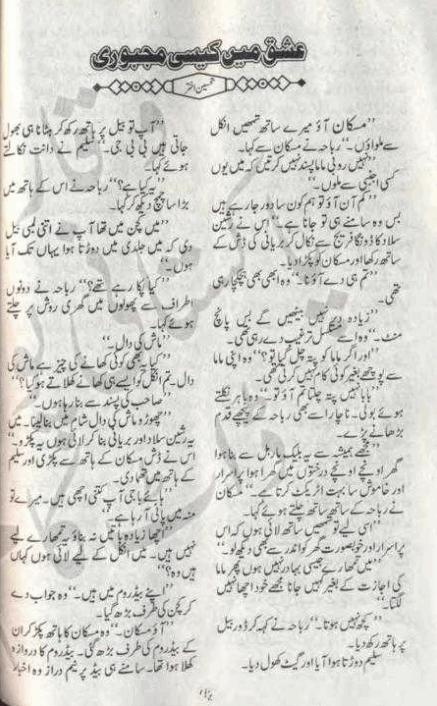 عشق میں کیسی مجبوری
تحسین اختر
”مسکان آؤ میرے ساتھ تمھیں انکل
سے ملواؤں۔“ رباحہ نے مسکان سے کہا۔
”نہیں روبی ماما پسند نہیں کرتیں کہ میں یوں
کسی اجنبی سے ملوں۔“
”کم آن آؤ تو ہم کون سا دور جا رہے ہیں
بس وہ سامنے ہی تو جانا ہے۔“ اس نے رشین
سلاد کا ڈونگا فریج سے نکال کر بریانی کی ڈش کے
ساتھ رکھا اور مسکان کو پکڑا دیا۔
”تم ہی دے آؤ نا۔“ وہ ابھی بھی ہچکچا رہی
تھی۔
”زیادہ دیر نہیں بیٹھیں گے بس پانچ
منٹ۔“ وہ اسے مسلسل ترغیب دے رہی تھی۔
”اور اگر ماما کو پتہ چل گیا تو؟“ وہ اپنی ماما
سے پوچھے بغیر کوئی کام نہیں کرتی تھی۔
”بابا نہیں پتہ چلتا ہم آؤ تو۔“ وہ باہر نکلتے
ہوئے بولی۔ ناچار اسے بھی رباحہ کے پیچھے قدم
بڑھانے پڑے۔
”مجھے ہمیشہ سے یہ بلیک ماربل سے بنا ہوا
گھر اونچے اونچے درختوں میں گھرا ہوا پراسرار
اور خاموش سا بہت اٹریکٹ کرتا ہے۔“ مسکان
نے رباحہ کے ساتھ ساتھ چلتے ہوئے کہا۔
”اسی لیے تو تمھیں ساتھ لائی ہوں کہ اس
پراسرار اور خوبصورت گھر کو اندر سے بھی دیکھ لو۔“
”میں تمہارے جیسی بہادر نہیں ہوں پھر ماما
کی اجازت کے بغیر کہیں جانا مجھے خود اچھا نہیں
لگتا۔“
”کچھ نہیں ہوتا۔“ رباحہ نے کہہ کر ڈور بیل
پر ہاتھ رکھ دیا۔
سلیم دوڑتا ہوا آیا اور گیٹ کھول دیا۔
”آپ تو بیل پر ہاتھ رکھ کر ہٹانا ہی بھول
جاتی ہیں بی بی جی۔“ سلیم نے دانت نکالتے
ہوئے کہا۔
”یہ کیا ہے؟“ رباحہ نے اس کے ہاتھ میں
بڑا سا چمچ دیکھ کر کہا۔
”میں کچن میں تھا آپ نے اتنی لمبی بیل
دی کہ میں جلدی میں دوڑتا ہوا یہاں تک آیا
ہوں۔“
”کیا پکا رہے تھے؟“ رباحہ نے دونوں
اطراف سے پھولوں میں گھری روش پر چلتے
ہوئے کہا۔
”ماش کی دال۔“
”کیا یہ بھی کوئی کھانے کی چیز ہے ماش کی
دال۔ تم انکل کو ایسے ہی کھانے کھلاتے ہو کیا؟“
”صاحب کی پسند سے بنا رہا ہوں۔“
”چھوڑو ماش کی دال شام میں بنا لینا۔ میں
یہ رشین سلاد اور بریانی بنا کر لائی ہوں یہ پکڑو۔“
اس نے ڈش مسکان کے ہاتھ سے پکڑی اور سلیم
کے ہاتھ میں تھما دی۔
”ہائے باجی آپ کتنی اچھی ہیں۔ میرے تو
منہ میں پانی آ رہا ہے۔“
”اچھا زیادہ باتیں نہ بناؤ یہ تمھارے لیے
نہیں ہیں۔ میں انکل کے لیے لائی ہوں کہاں
ہیں وہ؟“
”اپنے بیڈ روم میں ہیں۔“ وہ جواب دے
کر کچن کی طرف بڑھ گیا۔
”آؤ مسکان۔“ وہ مسکان کا ہاتھ پکڑ کر ان
کے بیڈ روم کی طرف بڑھ گئی۔ بیڈ روم کا دروازہ
کھلا ہوا تھا۔ سامنے ہی بیڈ پر نیم دراز وہ اخبار